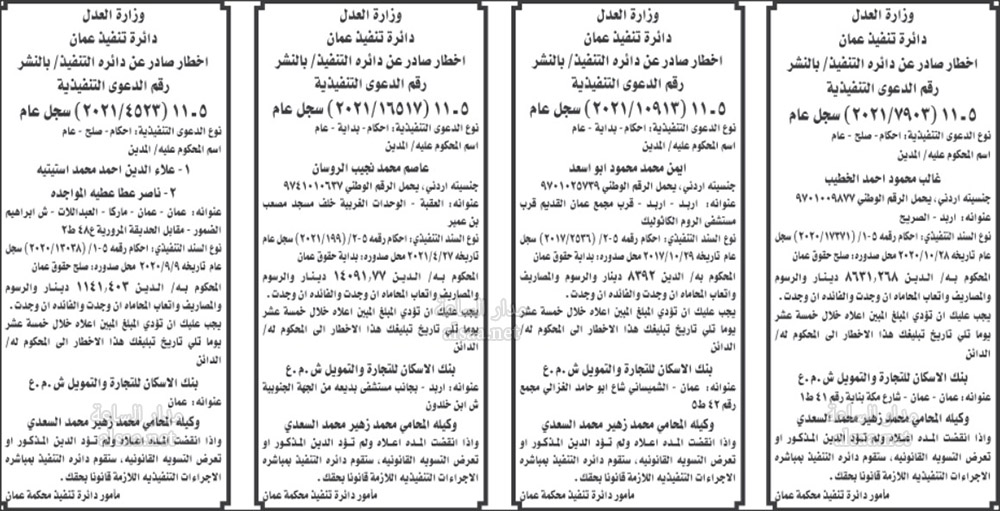 وزارة العدل
دائرة تنفيذ عمان
اخطار صادر عن دائره التنفيذ/ بالنشر
رقم الدعوى التنفيذية
٥ـ١١ (٢٠٢١/٧٩٠٣) سجل عام
نوع الدعوى التنفيذية: احكام- صلح - عام
اسم المحكوم عليه/ المدين
غالب محمود احمد الخطيب
جنسيته اردني، يحمل الرقم الوطني ٩٧٠١٠٠٩٨٧٧
عنوانه: اربد - الصريح
نوع السند التنفيذي: احكام رقمه ٥-١/ (٢٠٢٠/١٧٣٧١) سجل
عام تاريخه ٢٠٢٠/١٠/٢٨ محل صدوره: صلح حقوق عمان
المحكوم به/ الدين ٨٦٣١,٢٦٨ دينار والرسوم
والمصاريف واتعاب المحاماه ان وجدت والفائده ان وجدت.
يجب عليك ان تؤدي المبلغ المبين اعلاه خلال خمسة عشر
يوما تلي تاريخ تبليغك هذا الاخطار الى المحكوم له/
الدائن
بنك الاسكان للتجارة والتمويل ش.م.ع
عنوانه: عمان - عمان - شارع مكة بناية رقم ٤١ ط١
وكيله المحامي محمد زهير محمد السعدي
واذا انقضت المده اعلاه ولم تؤد الدين المذكور او
تعرض التسويه القانونيه، ستقوم دائره التنفيذ بمباشره
الاجراءات التنفيذيه اللازمة قانونا بحقك.
مأمور دائرة تنفيذ محكمة عمان
وزارة العدل
دائرة تنفيذ عمان
اخطار صادر عن دائره التنفيذ/ بالنشر
رقم الدعوى التنفيذية
٥ـ١١ (٢٠٢١/١٠٩١٣) سجل عام
نوع الدعوى التنفيذية: احكام- بداية - عام
اسم المحكوم عليه/ المدين
ايمن محمد محمود ابو اسعد
جنسيته اردني، يحمل الرقم الوطني ٩٧٠١٠٢٥٧٣٩
عنوانه: اربد - اربد - قرب مجمع عمان القديم قرب
مستشفى الروم الكاثوليك
نوع السند التنفيذي: احكام رقمه ٥-٢/ (٢٠١٧/٢٥٣٦) سجل
عام تاريخه ٢٠١٧/١٠/٢٩ محل صدوره: بداية حقوق عمان
المحكوم به/ الدين ٨٣٩٢ دينار والرسوم والمصاريف
واتعاب المحاماه ان وجدت والفائده ان وجدت.
يجب عليك ان تؤدي المبلغ المبين اعلاه خلال خمسة عشر
يوما تلي تاريخ تبليغك هذا الاخطار الى المحكوم له/
الدائن
بنك الاسكان للتجارة والتمويل ش.م.ع
عنوانه: عمان - الشميساني شاع ابو حامد الغزالي مجمع
رقم ٤٢ ط٥
وكيله المحامي محمد زهير محمد السعدي
واذا انقضت المده اعلاه ولم تؤد الدين المذكور او
تعرض التسويه القانونيه، ستقوم دائره التنفيذ بمباشره
الاجراءات التنفيذيه اللازمة قانونا بحقك.
مأمور دائرة تنفيذ محكمة عمان
وزارة العدل
دائرة تنفيذ عمان
اخطار صادر عن دائره التنفيذ/ بالنشر
رقم الدعوى التنفيذية
٥ـ١١ (٢٠٢١/١٦٥١٧) سجل عام
نوع الدعوى التنفيذية: احكام- بداية - عام
اسم المحكوم عليه/ المدين
عاصم محمد نجيب الروسان
جنسيته اردني، يحمل الرقم الوطني ٩٧٤١٠١٠٦٣٧
عنوانه: العقبة - الوحدات الغربية خلف مسجد مصعب
بن عمير
نوع السند التنفيذي: احكام رقمه ٥-٢/ (٢٠٢١/١٩٩) سجل عام
تاريخه ٢٠٢١/٤/٢٧ محل صدوره: بداية حقوق عمان
المحكوم به/ الدين ١٤٠٩١,٧٧ دينار والرسوم
والمصاريف واتعاب المحاماه ان وجدت والفائده ان وجدت.
يجب عليك ان تؤدي المبلغ المبين اعلاه خلال خمسة عشر
يوما تلي تاريخ تبليغك هذا الاخطار الى المحكوم له/
الدائن
بنك الاسكان للتجارة والتمويل ش.م.ع
عنوانه: اربد - بجانب مستشفى بديعه من الجهة الجنوبية
ش ابن خلدون
وكيله المحامي محمد زهير محمد السعدي
واذا انقضت المده اعلاه ولم تؤد الدين المذكور او
تعرض التسويه القانونيه، ستقوم دائره التنفيذ بمباشره
الاجراءات التنفيذيه اللازمة قانونا بحقك.
مأمور دائرة تنفيذ محكمة عمان
وزارة العدل
دائرة تنفيذ عمان
اخطار صادر عن دائره التنفيذ/ بالنشر
رقم الدعوى التنفيذية
٥ـ١١ (٢٠٢١/٤٥٢٣) سجل عام
نوع الدعوى التنفيذية: احكام- صلح - عام
اسم المحكوم عليه/ المدين
١- علاء الدين احمد محمد استيتيه
٢- ناصر عطا عطيه المواجده
عنوانه: عمان - عمان - ماركا - العبداللات - ش ابراهيم
الضمور - مقابل الحديقة المرورية ع٤٨ ط٢
نوع السند التنفيذي: احكام رقمه ٥-١/ (٢٠٢٠/١٣٠٣٨) سجل
عام تاريخه ٢٠٢٠/٩/٩ محل صدوره: صلح حقوق عمان
المحكوم به/ الدين ١١٤١,٤٠٣ دينار والرسوم
والمصاريف واتعاب المحاماه ان وجدت والفائده ان وجدت.
يجب عليك ان تؤدي المبلغ المبين اعلاه خلال خمسة عشر
يوما تلي تاريخ تبليغك هذا الاخطار الى المحكوم له/
الدائن
بنك الاسكان للتجارة والتمويل ش.م.ع
عنوانه: عمان
وكيله المحامي محمد زهير محمد السعدي
واذا انقضت المده اعلاه ولم تؤد الدين المذكور او
تعرض التسويه القانونيه، ستقوم دائره التنفيذ بمباشره
الاجراءات التنفيذيه اللازمة قانونا بحقك.
مأمور دائرة تنفيذ محكمة عمان
مدار الساعة
alsaa.net